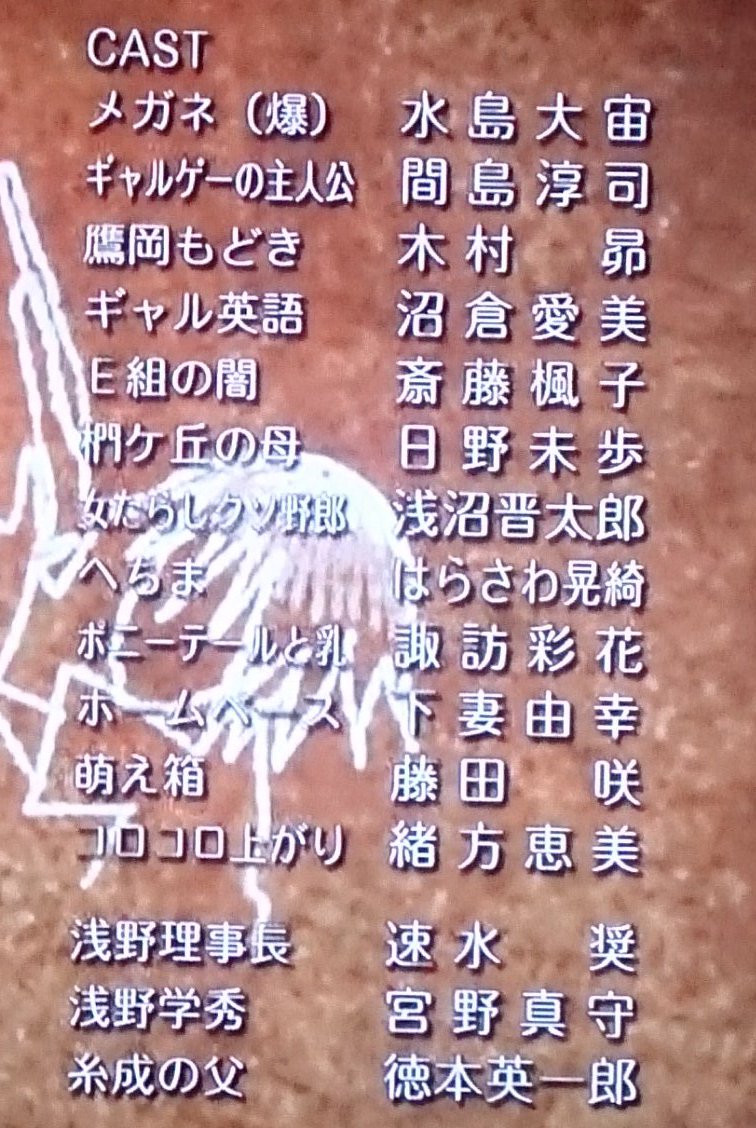 CAST
メガネ（爆） 水島大宙
ギャルゲーの主人公 間島淳司
鷹岡もどき 木村 昴
ギャル英語 沼倉愛美
E組の闇 斎藤楓子
椚ケ丘の母 日野未歩
女たらしクソ野郎 浅沼晋太郎
へちま はらさわ晃綺
ポニーテールと乳 諏訪彩花
ホームベース 下妻由幸
萌え箱 藤田 咲
コロコロ上がり 緒方恵美
浅野理事長 速水 奨
浅野学秀 宮野真守
糸成の父 徳本英一郎